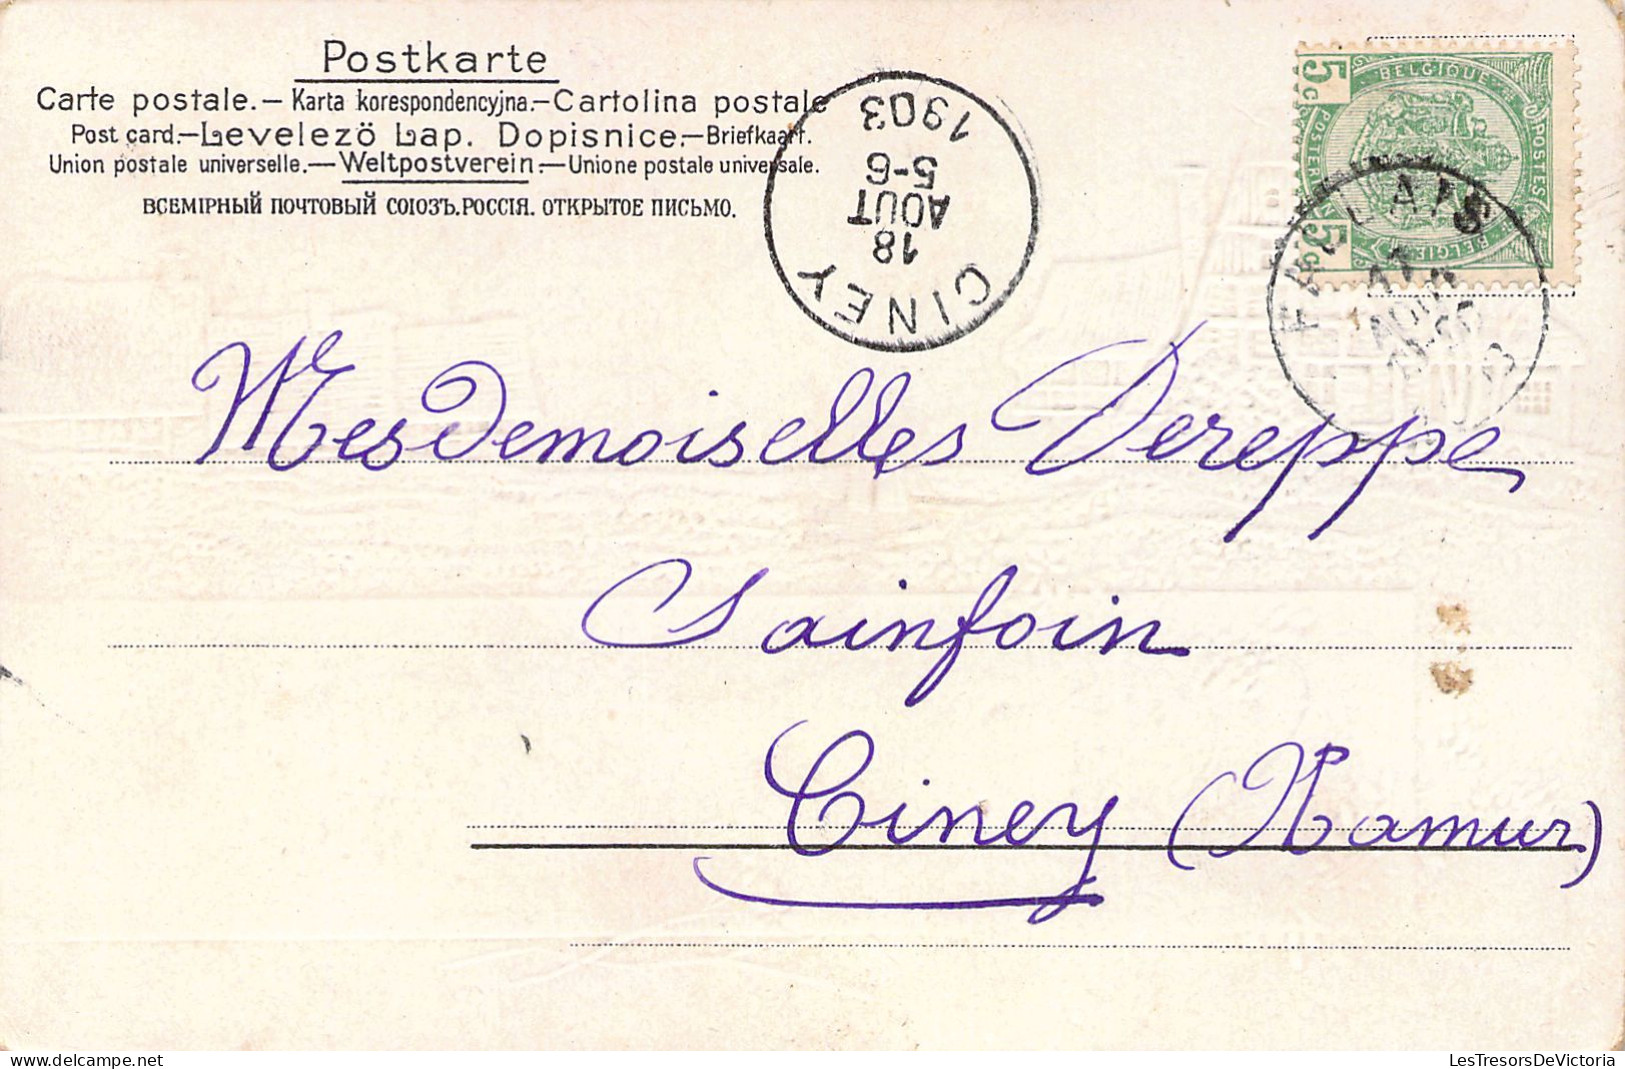 Postkarte
Carte postale.— Karta korespondencyjna.—Cartolina postale
Post card.—Levelező Lap. Dopisnice.—Briefkaart.
Union postale universelle.—Weltpostverein.—Unione postale universale.
ВСЕМІРНЫЙ ПОЧТОВЫЙ СОЮЗЪ.РОССІЯ. ОТКРЫТОЕ ПИСЬМО.
CINEY
18
AOUT
5-6
1903
5 C
BELGIQUE
POSTES
POSTERIJEN
BELGIË
5 C
AIS
Mesdemoiselles Dereppe
Sainfoin
Ciney (Namur)
LesTresorsDeVictoria